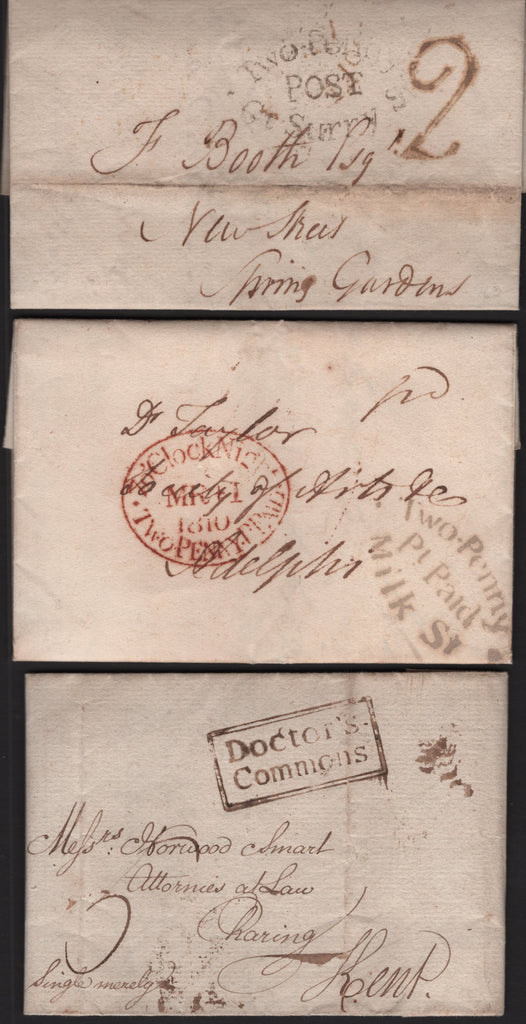 Two-Penny
POST
Surry St
2
F Booth Esqr.
New Street
Spring Gardens
pd
Dr Taylor
Society of Arts &c
Adelphi
8 o'Clock NIGHT
MR
1810
TWO PENNY PAID
Two-Penny
Pt Paid
Milk St
Doctor's
Commons
Messrs. Norwood Smart
Attornies at Law
Charing
Kent.
Single merely